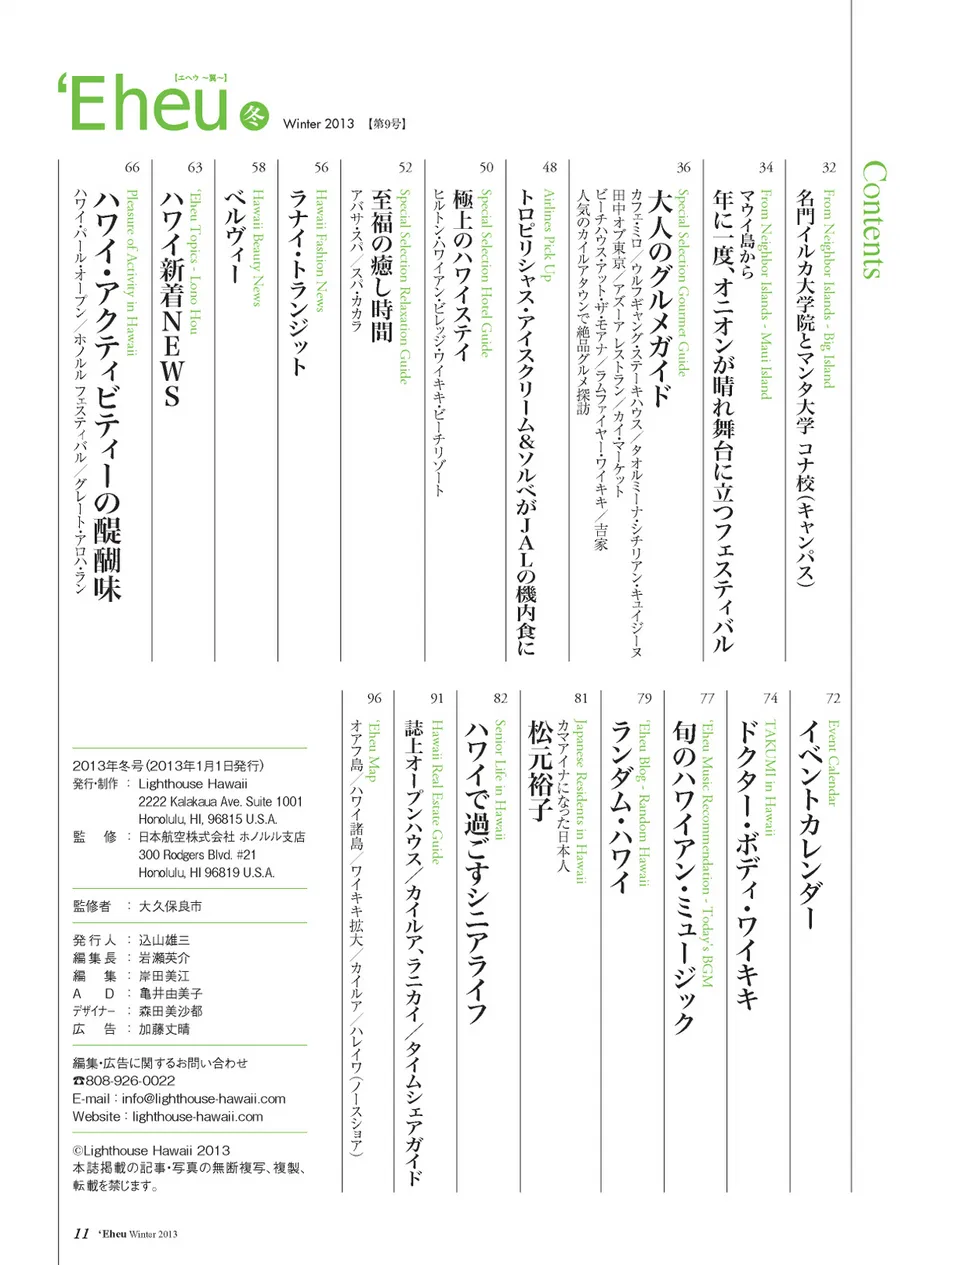 Contents
【エヘウ ～翼～】
‘Eheu 冬
Winter 2013 【第9号】
32
From Neighbor Islands - Big Island
名門イルカ大学院とマンタ大学 コナ校（キャンパス）
34
From Neighbor Islands - Maui Island
マウイ島から
年に一度、オニオンが晴れ舞台に立つフェスティバル
36
Special Selection Gourmet Guide
大人のグルメガイド
カフェミロ／ウルフギャング・ステーキハウス／タオルミーナ・シチリアン・キュイジーヌ
田中オブ東京／アズーア レストラン／カイ・マーケット
ビーチハウス・アット・ザ・モアナ／ラムファイヤー・ワイキキ／吉家
人気のカイルアタウンで絶品グルメ探訪
48
Airlines Pick Up
トロピリシャス・アイスクリーム&ソルベがJALの機内食に
50
Special Selection Hotel Guide
極上のハワイステイ
ヒルトン・ハワイアン・ビレッジ・ワイキキ・ビーチリゾート
52
Special Selection Relaxation Guide
至福の癒し時間
アバサ・スパ／スパ・カカラ
56
Hawaii Fashion News
ラナイ・トランジット
58
Hawaii Beauty News
ベルヴィー
63
‘Eheu Topics - Lono Hou
ハワイ新着NEWS
66
Pleasure of Activity in Hawaii
ハワイ・アクティビティーの醍醐味
ハワイ・パール・オープン／ホノルル フェスティバル／グレート・アロハ・ラン
72
Event Calendar
イベントカレンダー
74
TAKUMI in Hawaii
ドクター・ボディ・ワイキキ
77
‘Eheu Music Recommendation - Today's BGM
旬のハワイアン・ミュージック
79
‘Eheu Blog - Random Hawaii
ランダム・ハワイ
81
Japanese Residents in Hawaii
カマアイナになった日本人
松元裕子
82
Senior Life in Hawaii
ハワイで過ごすシニアライフ
91
Hawaii Real Estate Guide
誌上オープンハウス／カイルア、ラニカイ／タイムシェアガイド
96
‘Eheu Map
オアフ島／ハワイ諸島／ワイキキ拡大／カイルア／ハレイワ（ノースショア）
2013年冬号（2013年1月1日発行）
発行・制作 : Lighthouse Hawaii
2222 Kalakaua Ave. Suite 1001
Honolulu, HI, 96815 U.S.A.
監 修 : 日本航空株式会社 ホノルル支店
300 Rodgers Blvd. #21
Honolulu, HI 96819 U.S.A.
監修者 : 大久保良市
発行人 : 込山雄三
編集長 : 岩瀬英介
編 集 : 岸田美江
A D : 亀井由美子
デザイナー : 森田美沙都
広 告 : 加藤丈晴
編集・広告に関するお問い合わせ
☎808-926-0022
E-mail : info@lighthouse-hawaii.com
Website : lighthouse-hawaii.com
©Lighthouse Hawaii 2013
本誌掲載の記事・写真の無断複写、複製、
転載を禁じます。
11 ‘Eheu Winter 2013